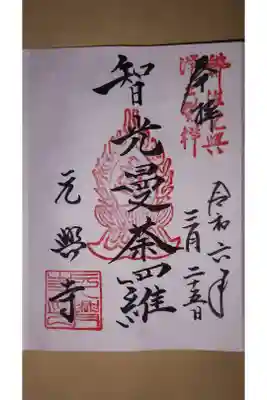 奉拝
令和六年
三月二十五日
智光曼荼羅
元興寺